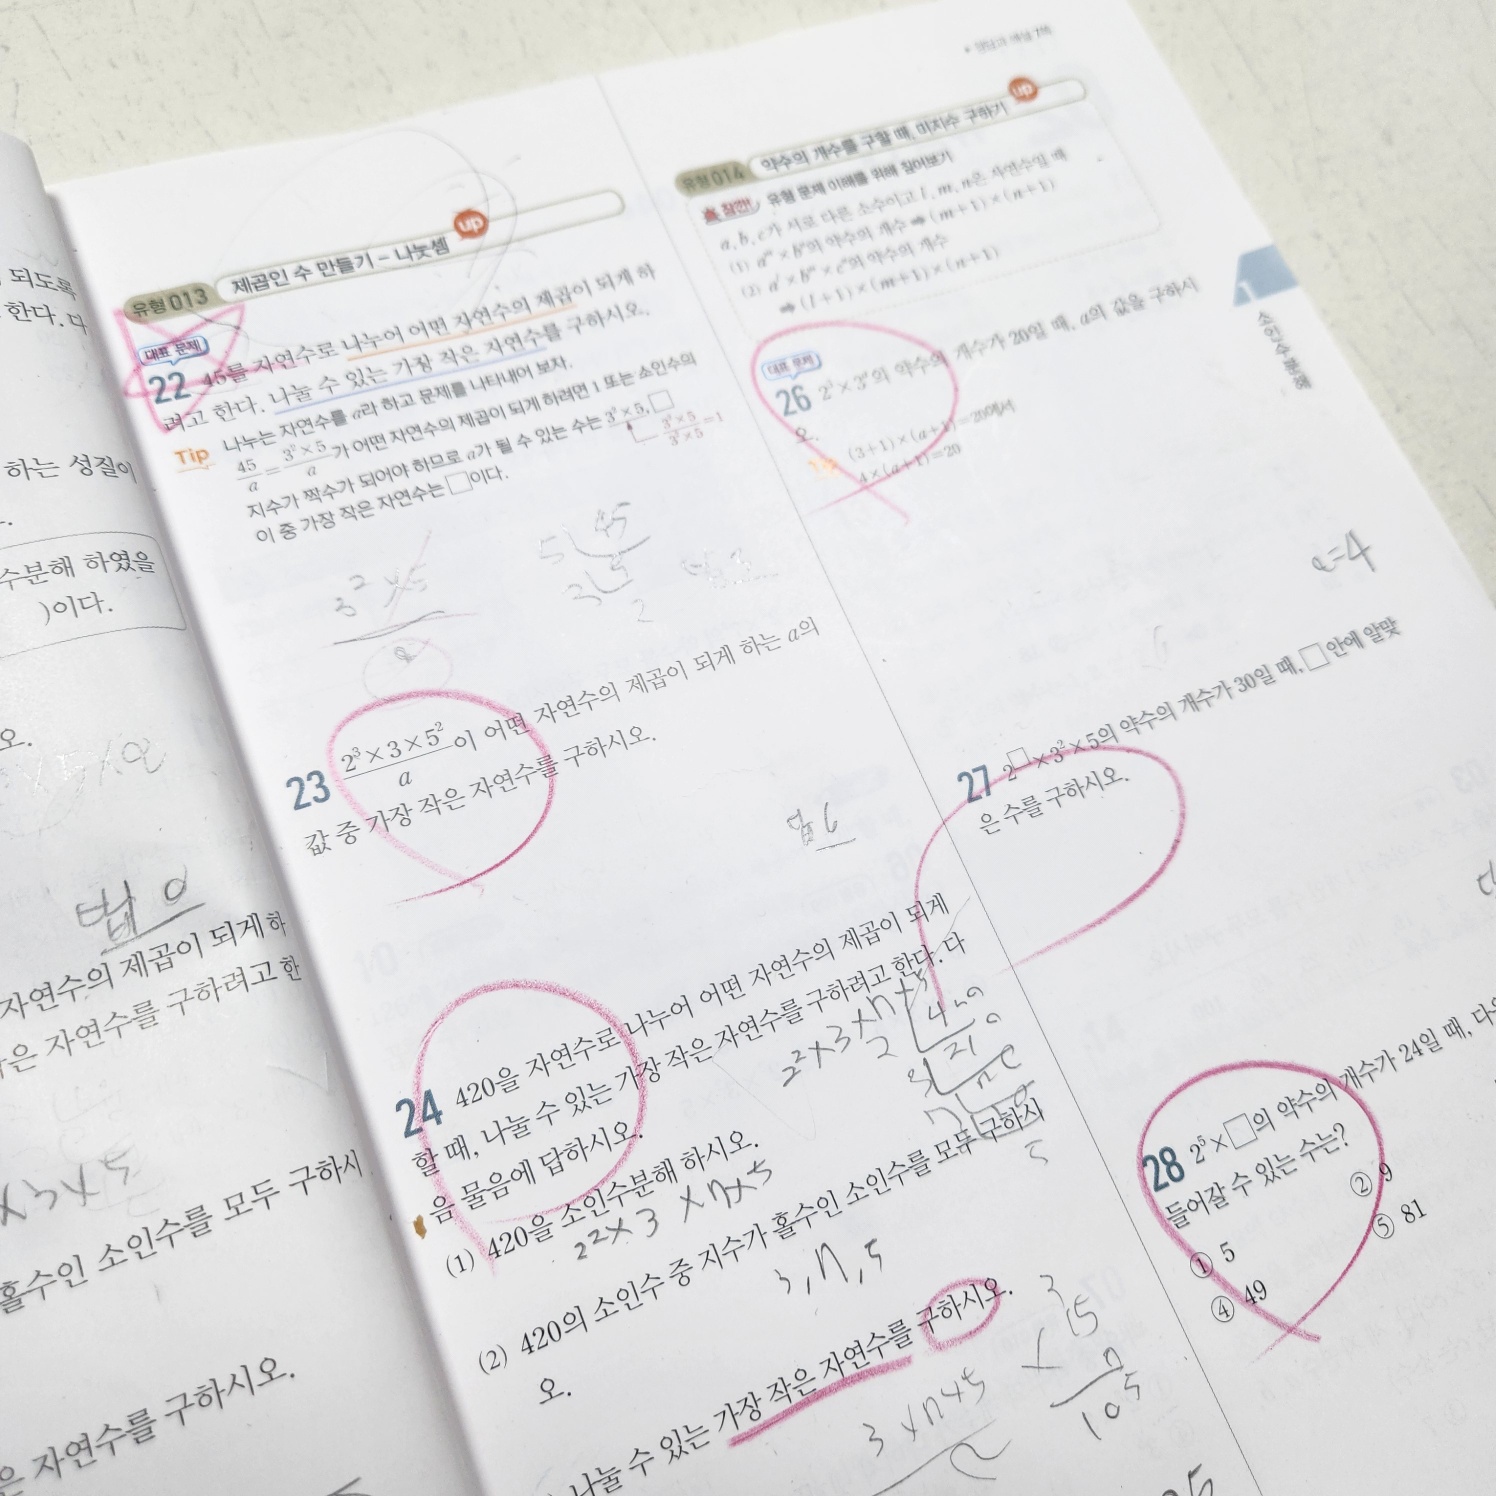 되도록
한다. 다
하는 성질이
수분해 하였을
)이다.
오.
답
자연수의 제곱이 되게 하
은 자연수를 구하려고 한
×3×5
소인수를 모두 구하시
홀수인 소인수를
은 자연수를 구하시오.
유형 013 제곱인 수 만들기 - 나눗셈 up
대표 문제
22 45를 자연수로 나누어 어떤 자연수의 제곱이 되게 하
려고 한다. 나눌 수 있는 가장 작은 자연수를 구하시오.
Tip 나누는 자연수를 a라 하고 문제를 나타내어 보자.
45/a = 3²×5/a 가 어떤 자연수의 제곱이 되게 하려면 1 또는 소인수의
지수가 짝수가 되어야 하므로 a가 될 수 있는 수는 3²×5, □
3²×5/3²×5=1
이 중 가장 작은 자연수는 □이다.
3²×5
a
5 45
3
23 2³×3×5²/a 이 어떤 자연수의 제곱이 되게 하는 a의
값 중 가장 작은 자연수를 구하시오.
답 6
24 420을 자연수로 나누어 어떤 자연수의 제곱이 되게
할 때, 나눌 수 있는 가장 작은 자연수를 구하려고 한다. 다
음 물음에 답하시오.
2²×3×7×5
(1) 420을 소인수분해 하시오.
2²×3×7×5
(2) 420의 소인수 중 지수가 홀수인 소인수를 모두 구하시
오.
3, 7, 5
나눌 수 있는 가장 작은 자연수를 구하시오.
3×7×5
3
15
× 7
105
유형 014 약수의 개수를 구할 때, 미지수 구하기 up
잠깐! 유형 문제 이해를 위해 짚어보기
a, b, c가 서로 다른 소수이고 l, m, n은 자연수일 때
(1) aᵐ×bⁿ의 약수의 개수 ➡ (m+1)×(n+1)
(2) aˡ×bᵐ×cⁿ의 약수의 개수
➡ (l+1)×(m+1)×(n+1)
대표 문제
26 2³×3ᵃ의 약수의 개수가 20일 때, a의 값을 구하시
오.
Tip (3+1)×(a+1)=20에서
4×(a+1)=20
a=4
27 2□×3²×5의 약수의 개수가 30일 때, □ 안에 알맞
은 수를 구하시오.
28 2⁵×□의 약수의 개수가 24일 때, 다음
들어갈 수 있는 수는?
① 5 ② 9
④ 49 ⑤ 81
1
소인수분해